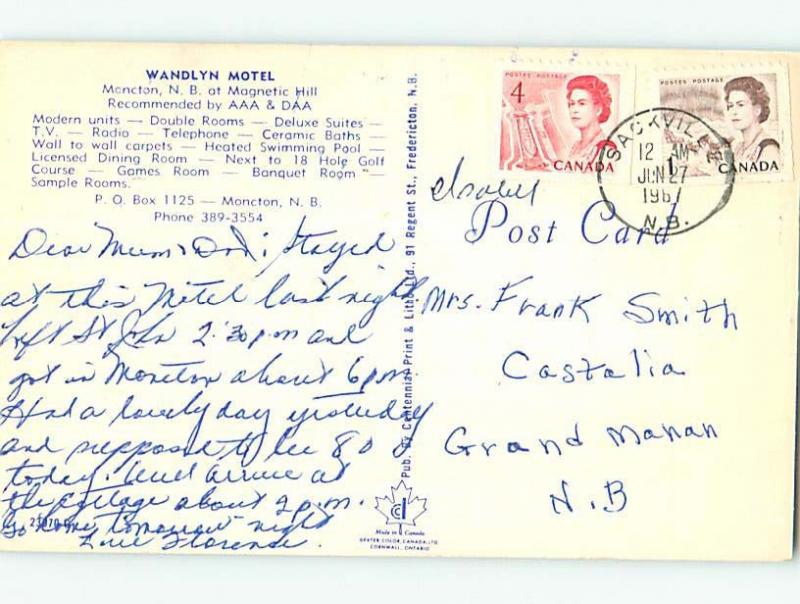 WANDLYN MOTEL
Moncton, N. B. at Magnetic Hill
Recommended by AAA & DAA
Modern units — Double Rooms — Deluxe Suites -
T.V. — Radio — Telephone — Ceramic Baths —
Wall to wall carpets — Heated Swimming Pool —
Licensed Dining Room — Next to 18 Hole Golf
Course — Games Room — Banquet Room —
Sample Rooms.
P. O. Box 1125 — Moncton, N. B.
Phone 389-3554
Dear Mum & Dad; Stayed
at this Motel last night.
Left St John 2:30 p.m and
got in Moncton about 6 p.m.
Had a lovely day yesterday
and supposed to be 80°
today. Will arrive at
the cottage about 2 p.m.
Go home tomorrow night
Love Florence.
Pub. by Centennial Print & Litho Ltd., 91 Regent St., Fredericton, N.B.
POSTES POSTAGE
4
CANADA
POSTES POSTAGE
1
CANADA
SACKVILLE
12 AM
JUN 27
196
N.B.
Post Card
Mrs. Frank Smith
Castalia
Grand Manan
N.B
Made in Canada
DEXTER COLOR CANADA, LTD.
CORNWALL, ONTARIO